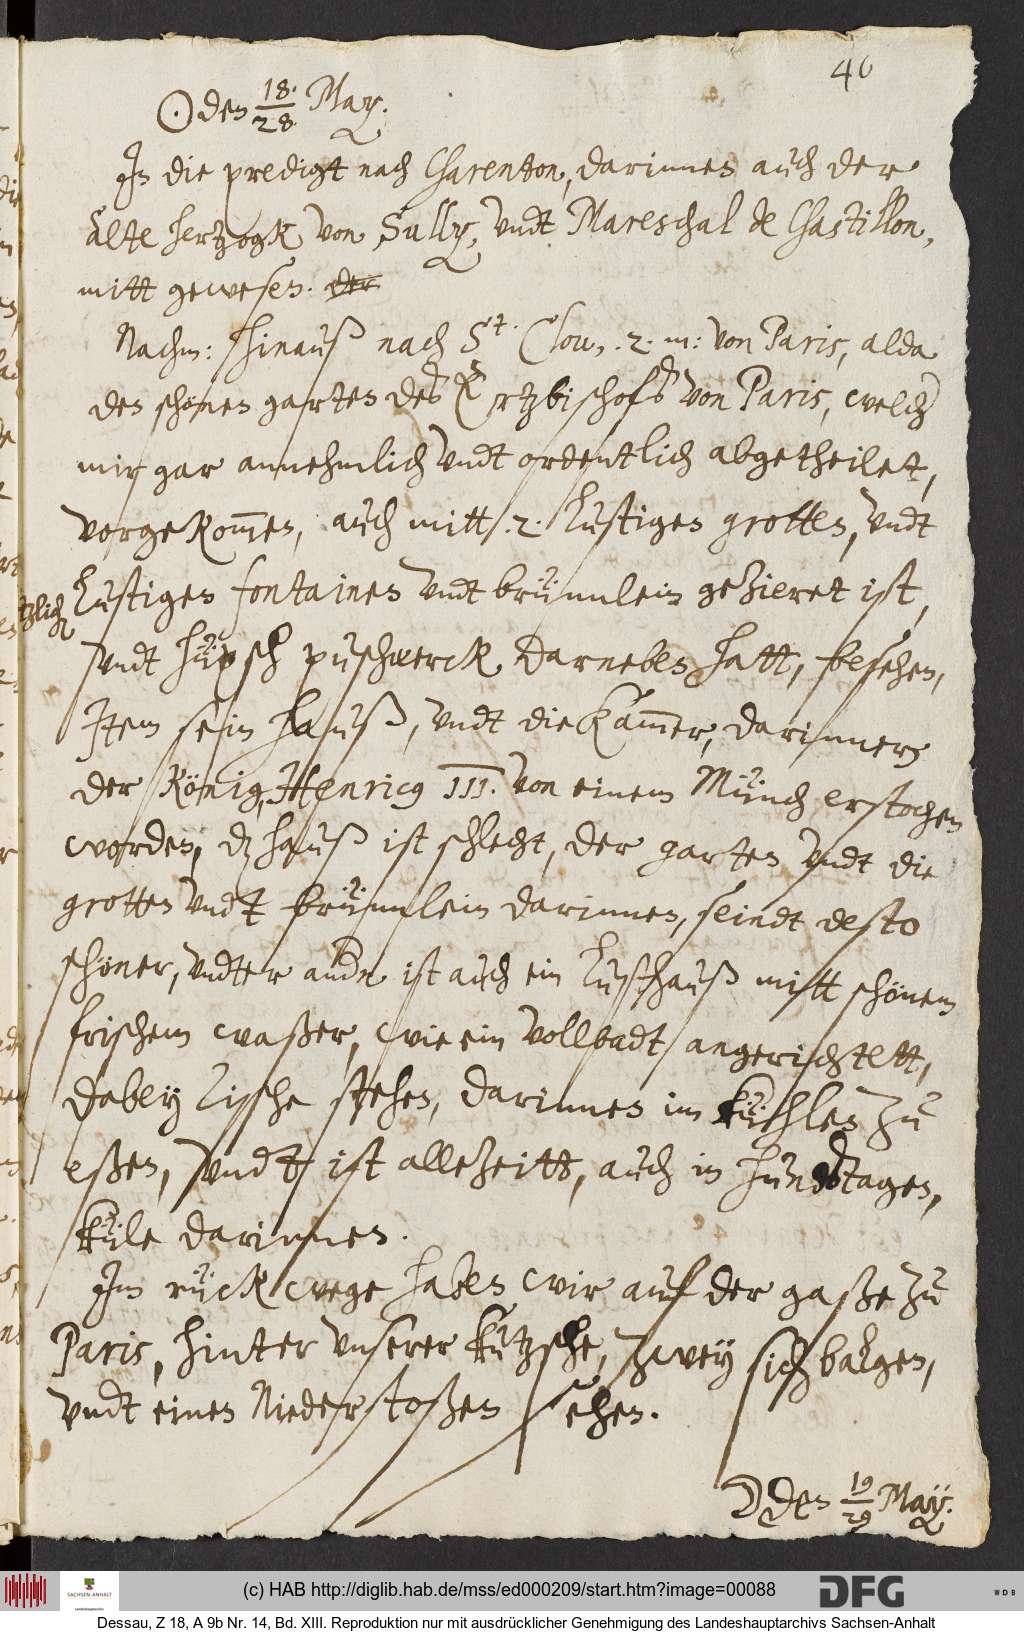 46
☉ den 18./28. May.
In die predigt nach Charenton, darinnen auch der
alte hertzogk von Sully, vndt Mareschal de Chastillon,
mitt gewesen. der
Nachm: hinauß nach St. Clou, .2. m: von Paris, alda
den schönen garten des Ertzbischofs von Paris, welch
mir gar annehmlich vndt ordentlich abgetheilet,
vorgekom̅en, auch mitt .2. lustigen grotten, vndt
lustigen fontainen vndt brünnlein gezieret ist,
vndt hüpsch puschwerck darneben hatt, besehen,
Item sein hauß, vndt die kam̅er, darinnen
der könig, Henricus III. von einem Münch erstochen
worden, dz hauß ist schlecht, der garten vndt die
grotten vndt brünnlein darinnen, seindt desto
schöner, vndter andn ist auch ein lusthauß mitt schönem
frischem waßer, wie ein vollbadt angerichtett,
dabey tische stehen, darinnen im kühlen zu
eßen, vndt ist allezeitt, auch in hundstagen,
küle darinnen.
Im rückwege haben wir auf der gaße zu
Paris, hinter vnserer kutzsche, zwey sich balgen,
vndt einen niederstoßen sehen.
☽ den 19/29 May.
(c) HAB http://diglib.hab.de/mss/ed000209/start.htm?image=00088
SACHSEN-ANHALT
DFG
WDB
Dessau, Z 18, A 9b Nr. 14, Bd. XIII. Reproduktion nur mit ausdrücklicher Genehmigung des Landeshauptarchivs Sachsen-Anhalt